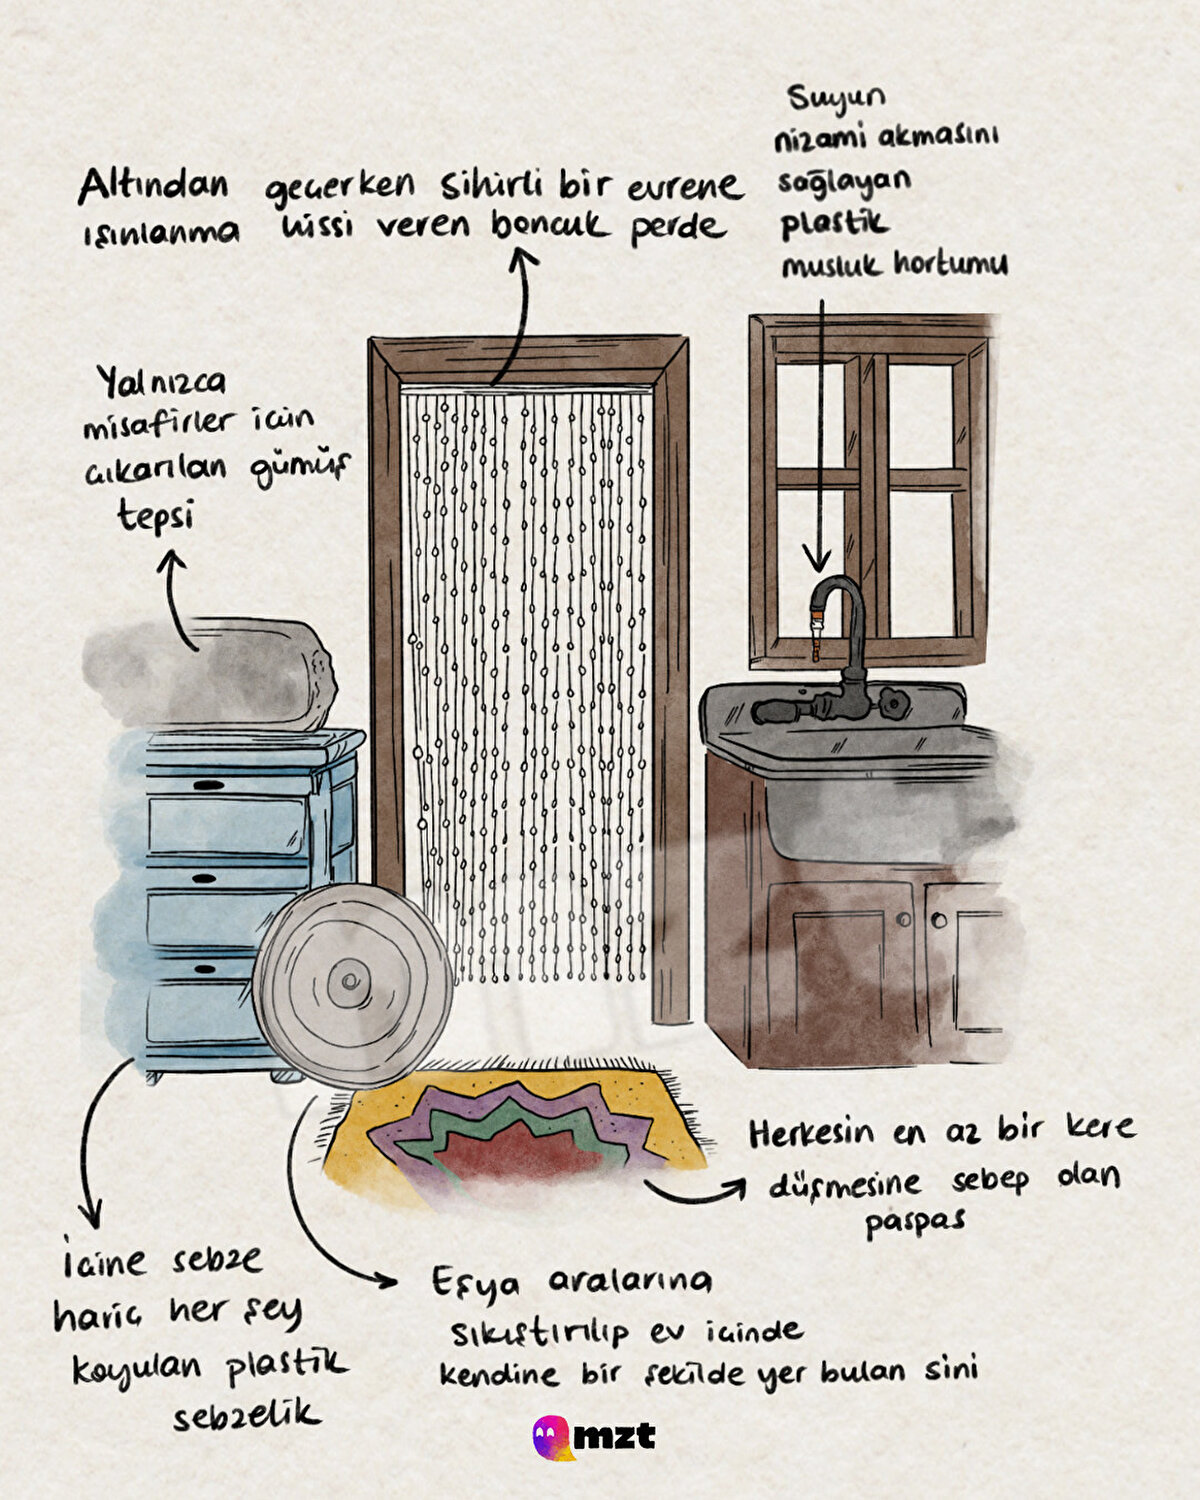 Suyun
nizami akmasını
sağlayan
plastik
musluk hortumu
Altından geçerken sihirli bir evrene
ışınlanma hissi veren boncuk perde
Yalnızca
misafirler için
çıkarılan gümüş
tepsi
Herkesin en az bir kere
düşmesine sebep olan
paspas
İçine sebze
hariç her şey
koyulan plastik
sebzelik
Eşya aralarına
sıkıştırılıp ev içinde
kendine bir şekilde yer bulan sini
mzt